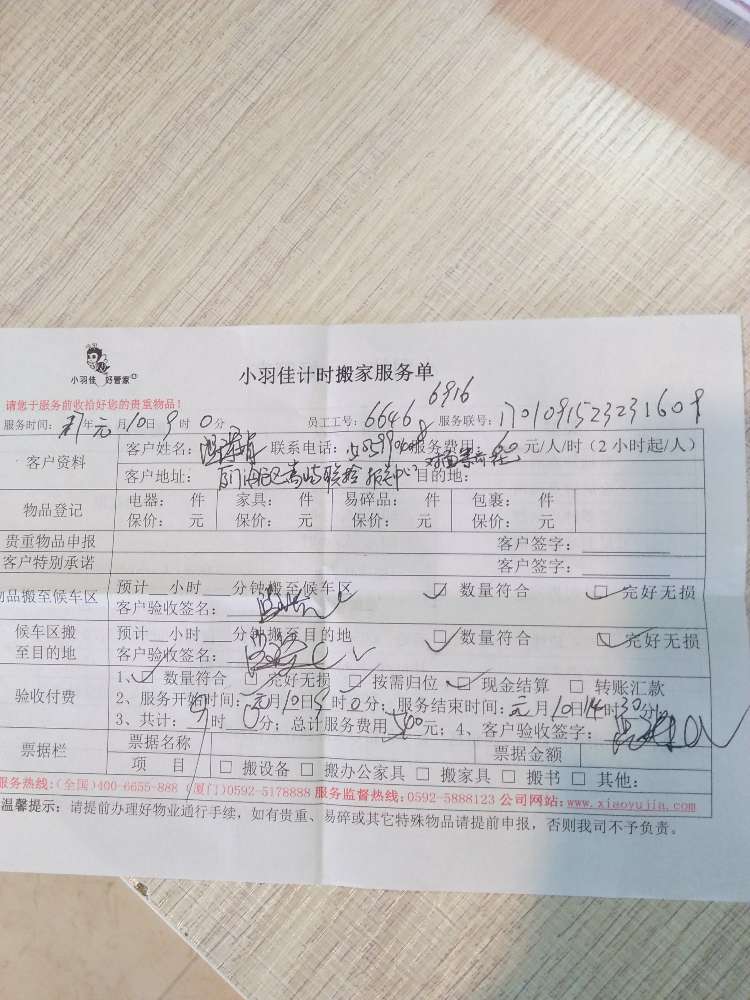 小羽佳 好管家
小羽佳计时搬家服务单
6916
请您于服务前收拾好您的贵重物品！
服务时间： 年元月10日9时0分 员工工号：6646 服务联号：1701091523231609
客户资料 客户姓名： 联系电话： 服务费用：60元/人/时（2小时起/人）
客户地址： 目的地：
物品登记 电器： 件 家具： 件 易碎品： 件 包裹： 件
保价： 元 保价： 元 保价： 元 保价： 元
贵重物品申报 客户签字：
客户特别承诺 客户签字：
物品搬至候车区 预计__小时___分钟搬至候车区 ☑ 数量符合 ☑ 完好无损
客户验收签名：
候车区搬至目的地 预计__小时___分钟搬至目的地 ☑ 数量符合 ☑ 完好无损
客户验收签名：
验收付费 1、☑ 数量符合 ☑ 完好无损 ☑ 按需归位 ☑ 现金结算 □ 转账汇款
2、服务开始时间：元月10日9时0分；服务结束时间：元月10日14时30分
3、共计： 时 分；总计服务费用 元；4、客户验收签字：
票据栏 票据名称 票据金额
项 目 □ 搬设备 □ 搬办公家具 □ 搬家具 □ 搬书 □ 其他：
服务热线：(全国)400-6655-888 (厦门)0592-5178888 服务监督热线：0592-5888123 公司网站：www.xiaoyujia.com
温馨提示：请提前办理好物业通行手续，如有贵重、易碎或其它特殊物品请提前申报，否则我司不予负责。